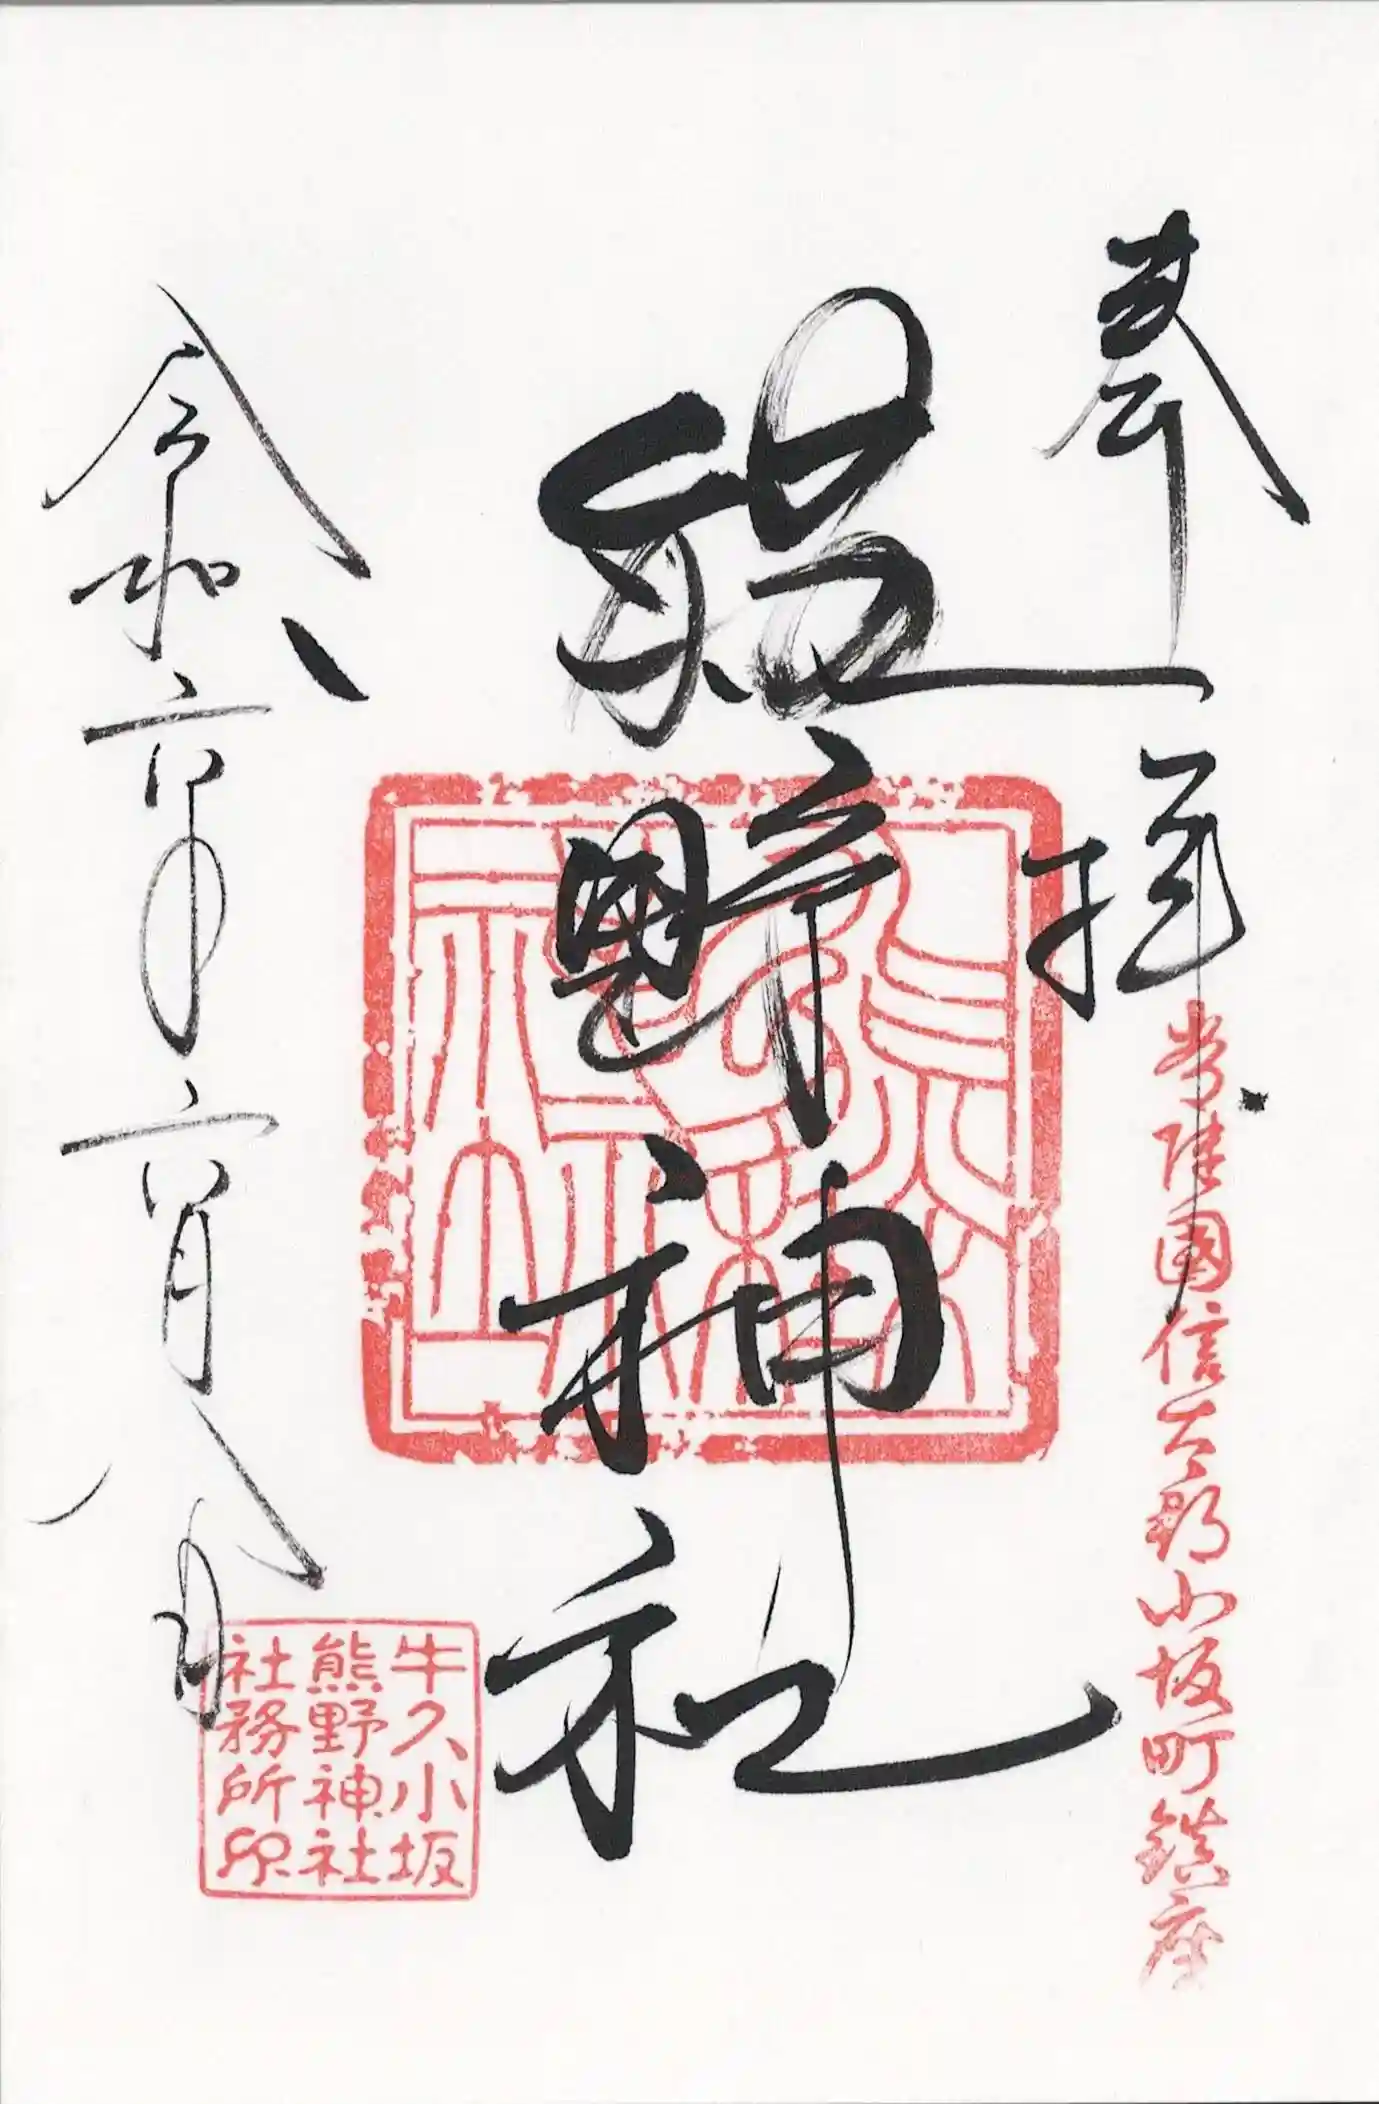 奉拝
常陸國信太郡小坂町鎮座
熊野神社
令和六年六月八日
牛久小坂
熊野神社
社務所印